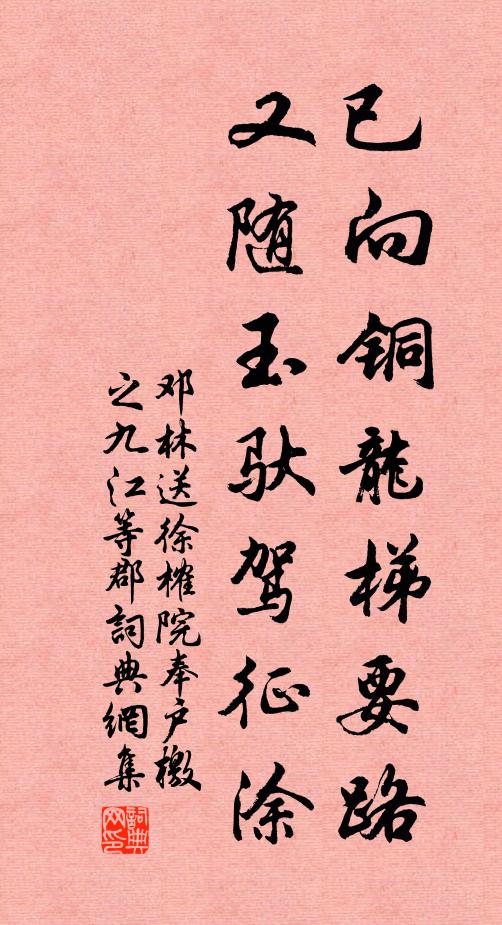 已向铜龍梯要路
又随玉馱駕征涂
邓林送徐榷院奉户檄
之九江等郡詞典網集
詞典网印